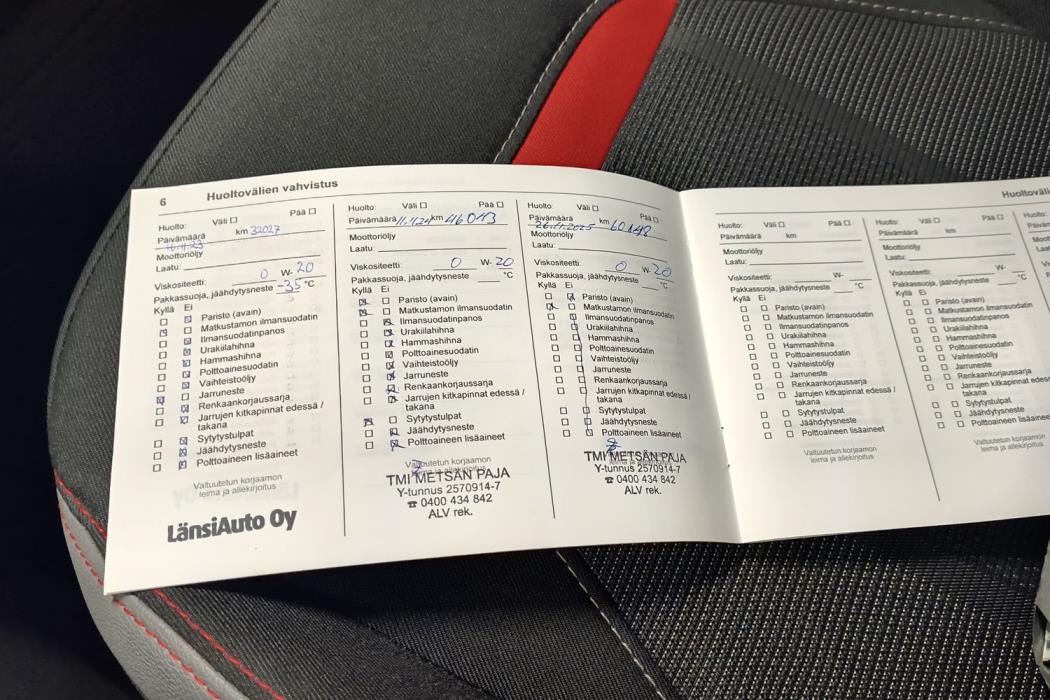 6 Huoltovälien vahvistus
Huolto: Väli ☐ Pää ☐
Päivämäärä km 32027
Moottoriöljy
Laatu:
Viskositeetti: 0 W- 20
Pakkassuoja, jäähdytysneste -35 °C
Kyllä Ei
Paristo (avain)
Matkustamon ilmansuodatin
Ilmansuodatinpanos
Urakiilahihna
Hammashihna
Polttoainesuodatin
Vaihteistoöljy
Jarruneste
Renkaankorjaussarja
Jarrujen kitkapinnat edessä /
takana
Sytytystulpat
Jäähdytysneste
Polttoaineen lisäaineet
Valtuutetun korjaamon
leima ja allekirjoitus
LänsiAuto Oy
Huolto: Väli ☐ Pää ☐
Päivämäärä 11.11.24 km 46043
Moottoriöljy
Laatu:
Viskositeetti: 0 W- 20
Pakkassuoja, jäähdytysneste °C
Kyllä Ei
Paristo (avain)
Matkustamon ilmansuodatin
Ilmansuodatinpanos
Urakiilahihna
Hammashihna
Polttoainesuodatin
Vaihteistoöljy
Jarruneste
Renkaankorjaussarja
Jarrujen kitkapinnat edessä /
takana
Sytytystulpat
Jäähdytysneste
Polttoaineen lisäaineet
Valtuutetun korjaamon
leima ja allekirjoitus
TMI METSÄN PAJA
Y-tunnus 2570914-7
☎ 0400 434 842
ALV rek.
Huolto: Väli ☐ Pää ☐
Päivämäärä 26.11.2025 km 60148
Moottoriöljy
Laatu:
Viskositeetti: 0 W- 20
Pakkassuoja, jäähdytysneste °C
Kyllä Ei
Paristo (avain)
Matkustamon ilmansuodatin
Ilmansuodatinpanos
Urakiilahihna
Hammashihna
Polttoainesuodatin
Vaihteistoöljy
Jarruneste
Renkaankorjaussarja
Jarrujen kitkapinnat edessä /
takana
Sytytystulpat
Jäähdytysneste
Polttoaineen lisäaineet
TMI METSÄN PAJA
Y-tunnus 2570914-7
☎ 0400 434 842
ALV rek.
Huolto: Väli ☐ Pää ☐
Päivämäärä km
Moottoriöljy
Laatu:
Viskositeetti: W-
Pakkassuoja, jäähdytysneste °C
Kyllä Ei
Paristo (avain)
Matkustamon ilmansuodatin
Ilmansuodatinpanos
Urakiilahihna
Hammashihna
Polttoainesuodatin
Vaihteistoöljy
Jarruneste
Renkaankorjaussarja
Jarrujen kitkapinnat edessä /
takana
Sytytystulpat
Jäähdytysneste
Polttoaineen lisäaineet
Valtuutetun korjaamon
leima ja allekirjoitus
Huolto: Väli ☐ Pää ☐
Päivämäärä km
Moottoriöljy
Laatu:
Viskositeetti: W-
Pakkassuoja, jäähdytysneste °C
Kyllä Ei
Paristo (avain)
Matkustamon ilmansuodatin
Ilmansuodatinpanos
Urakiilahihna
Hammashihna
Polttoainesuodatin
Vaihteistoöljy
Jarruneste
Renkaankorjaussarja
Jarrujen kitkapinnat edessä /
takana
Sytytystulpat
Jäähdytysneste
Polttoaineen lisäaineet
Valtuutetun korjaamon
leima ja allekirjoitus